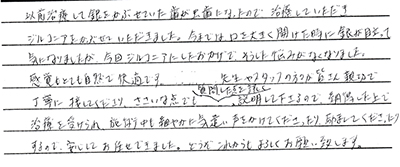 以前治療して銀をかぶせていた歯が虫歯になったので治療していただき
ジルコニアをかぶせていただきました。今までは口を大きく開けた時に銀が目立って
気になりましたが、今回ジルコニアにしたおかげでそうした悩みがなくなりました。
感覚もとても自然で快適です。 先生やスタッフの方が皆さん親切で
質問したこと
丁寧に接してくださり、ささいな点でも 説明して下さるので、納得した上で
治療を受けられ、施術中も細やかに気遣い声をかけてくださったり、励ましてくださったり
するので、安心してお任せできました。どうぞこれからもよろしくお願い致します。